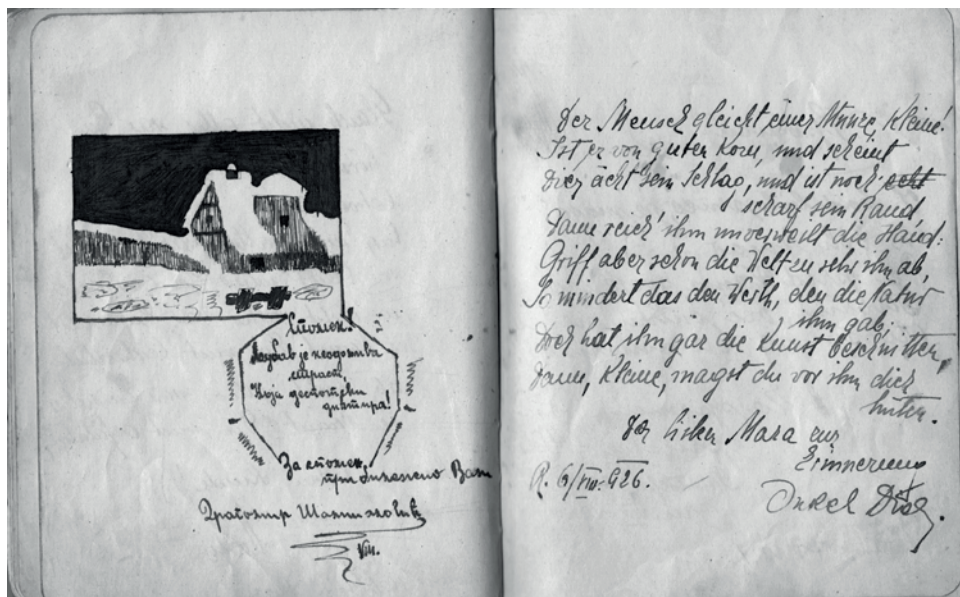 Спомен!
Љубав је неодољива
страст,
Која деспотски
дјтира!
За спомен,
приближено Вам
Драгомир
VIII.
Der Mensch gleicht einer Münze, Kleine!
Ist er von guten Korn, und scheint
Dir ächt sein Schlag, und ist noch echt
scharf sein Rand,
Dann reich' ihm unverweilt die Hand:
Griff aber schon die Welt zu sehr ihm ab,
So mindert das den Werth, den die Natur
ihm gab,
Doch hat ihm gar die Kunst beschnitten,
Dann, Kleine, magst du vor ihm dich
hüten.
Der lieben Mara zur
Erinnerung
R. 6/VIII. 926.
Onkel